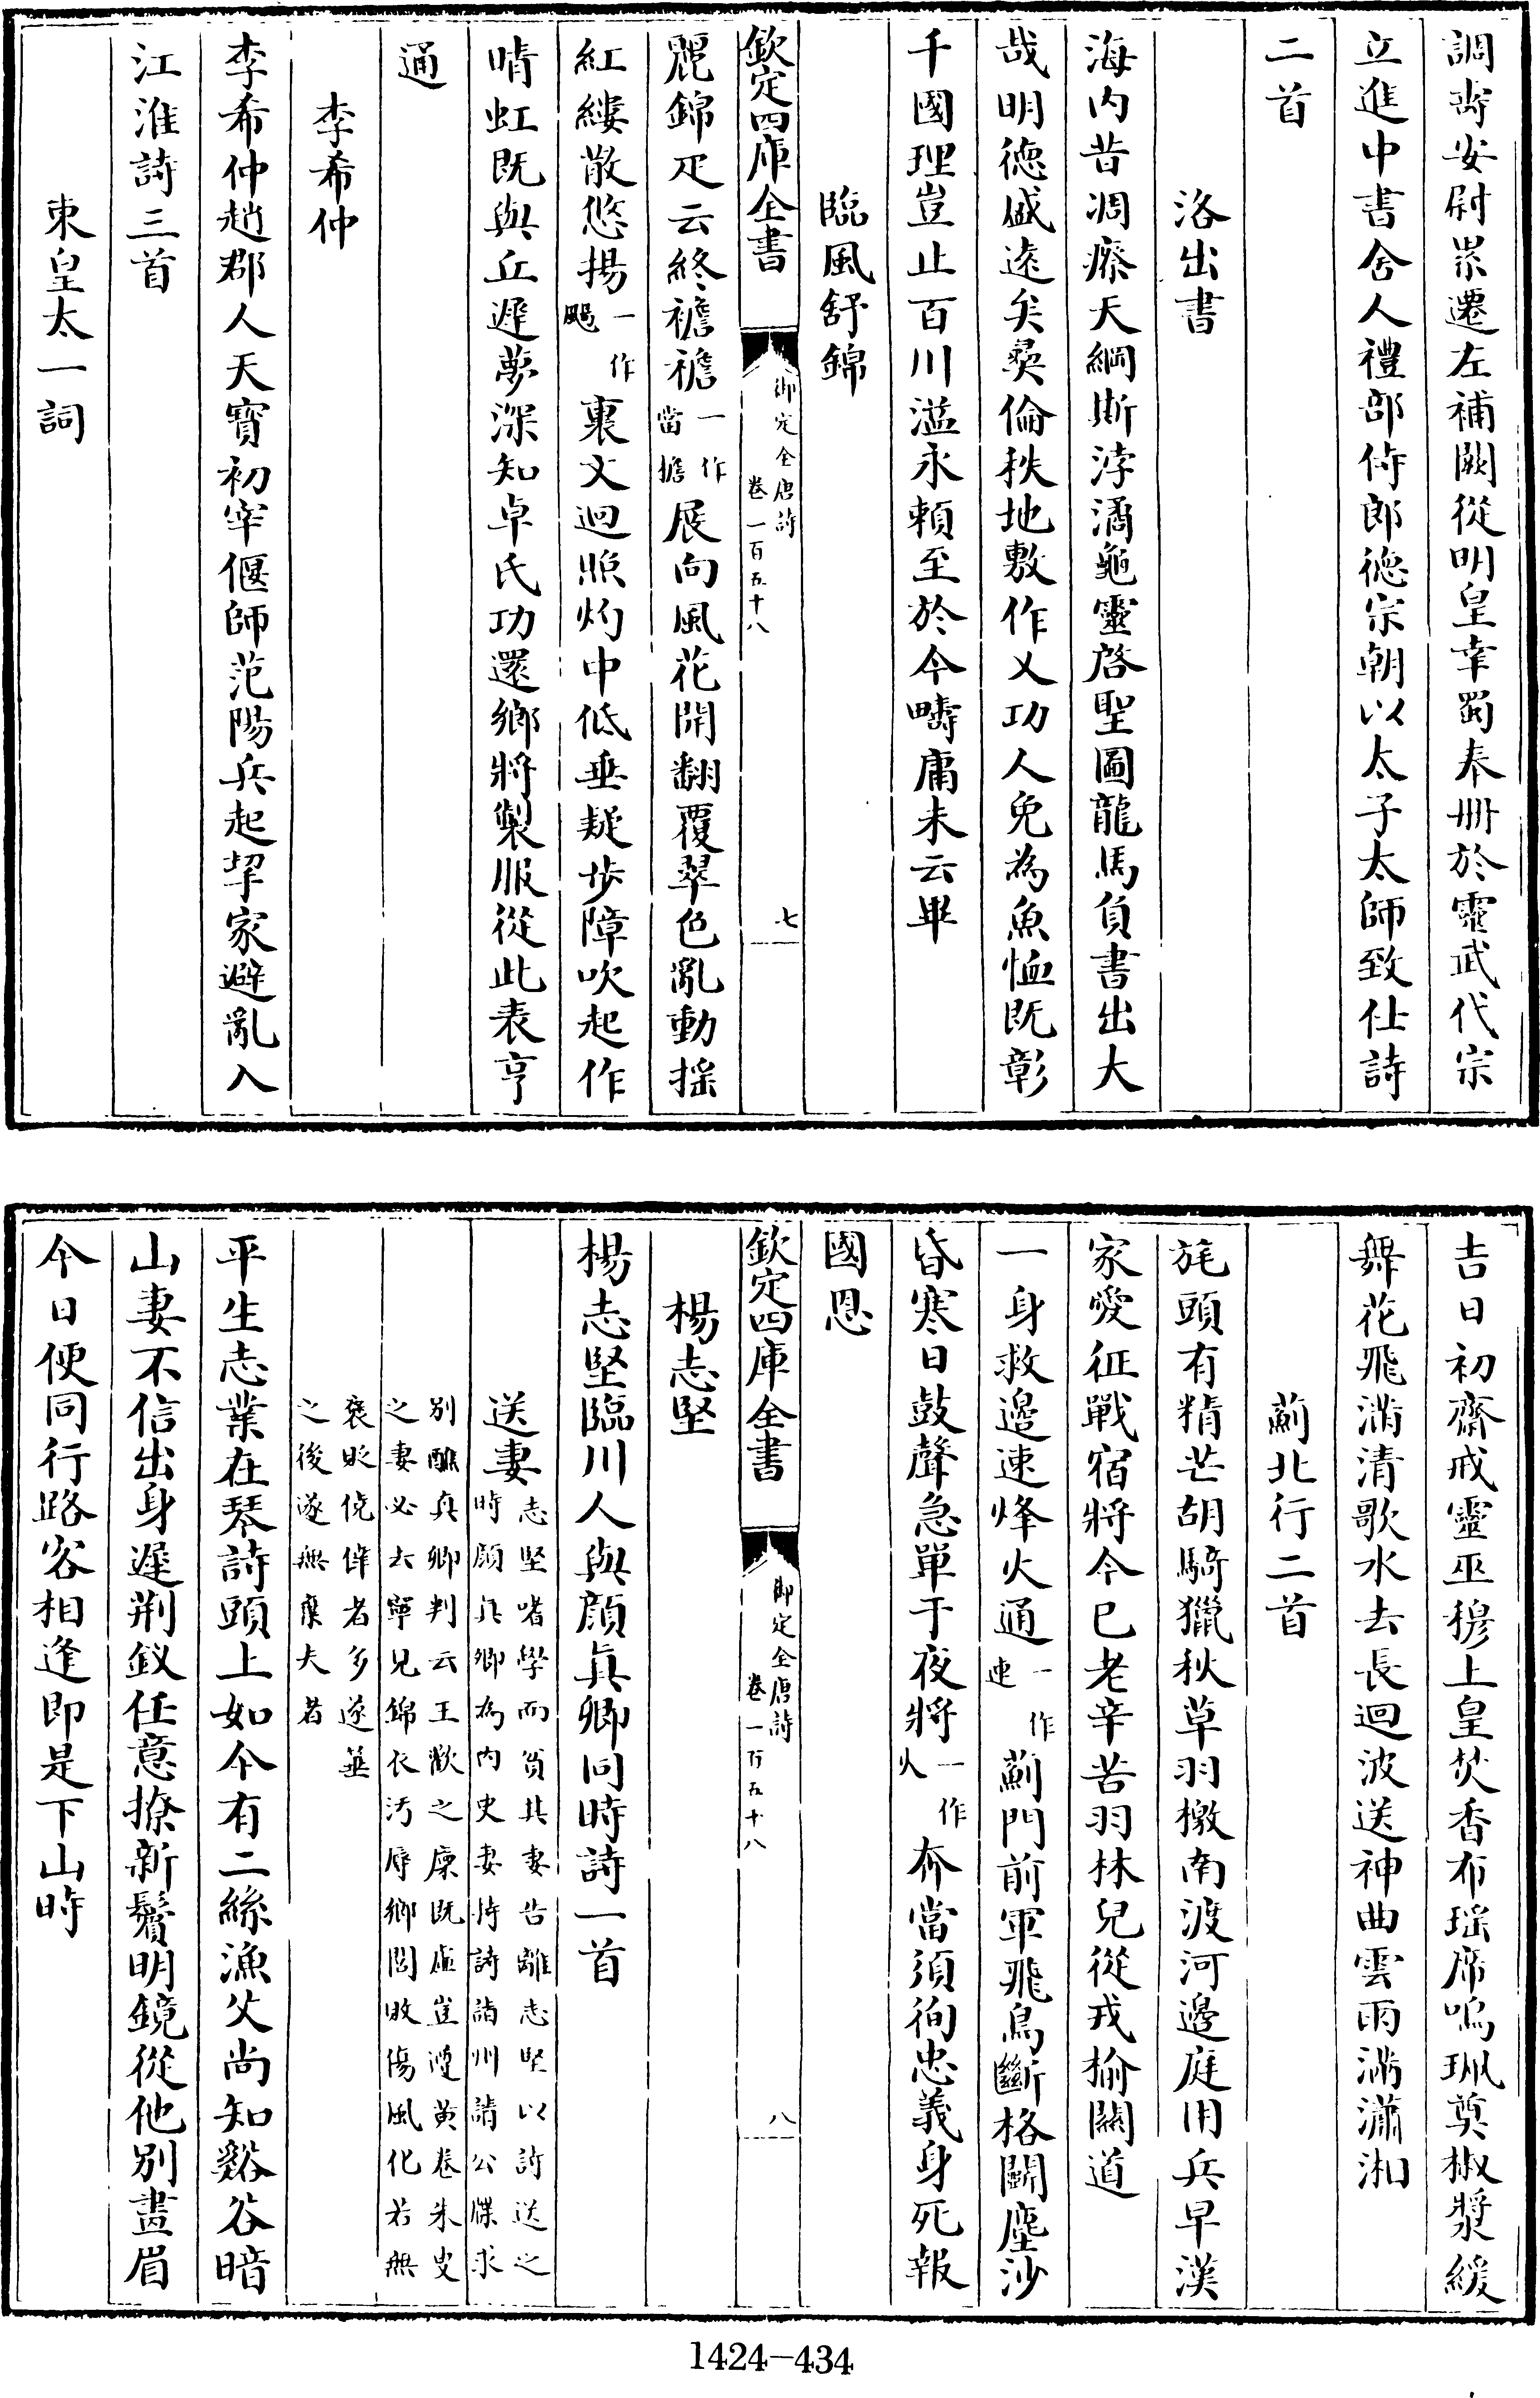 調壽安尉累遷左補闕從明皇幸蜀奉冊於靈武代宗
立進中書舍人禮部侍郎德宗朝以太子太師致仕詩
二首
洛出書
海内昔凋瘵天綱斯浡潏龜靈啓聖圖龍馬負書出大
哉明德盛遠矣彛倫秩地敷作乂功人免為魚恤既彰
千國理豈止百川溢永頼至於今疇庸未云畢
臨風舒錦
欽定四庫全書
御定全唐詩
卷一百五十八
七
麗錦疋云終襜襜一作當擔展向風花開翻覆翠色亂動揺
紅縷散悠揚一作颺裏文迥照灼中低垂疑歩障吹起作
晴虹既與丘遲夢深知卓氏功還鄉將製服從此表亨
通
李希仲
李希仲趙郡人天寶初宰偃師范陽兵起挈家避亂入
江淮詩三首
東皇太一詞
吉日初齋戒靈巫穆上皇焚香布瑶席嗚珮奠椒漿緩
舞花飛滿清歌水去長迴波送神曲雲雨滿瀟湘
薊北行二首
旄頭有精芒胡騎獵秋草羽檄南渡河邊庭用兵早漢
家愛征戰宿將今已老辛苦羽林兒從戎榆關道
一身救邊速烽火通一作連薊門前軍飛鳥斷格鬬塵沙
昏寒日鼓聲急單于夜將一作火奔當須徇忠義身死報
國恩
欽定四庫全書
御定全唐詩
卷一百五十八
八
楊志堅
楊志堅臨川人與顔真卿同時詩一首
送妻志堅嗜學而貧其妻告離志堅以詩送之
時顔真卿為内史妻持詩詣州請公牒求
別醮真卿判云王歡之廩既虚豈遵黄卷朱叟
之妻必去寧見錦衣汚辱鄉閭敗傷風化若無
褒貶僥倖者多遂箠
之後遂無棄夫者
平生志業在琴詩頭上如今有二絲漁父尚知谿谷暗
山妻不信出身遲荆釵任意撩新鬢明鏡從他別畫眉
今日便同行路客相逢即是下山時
1424-434